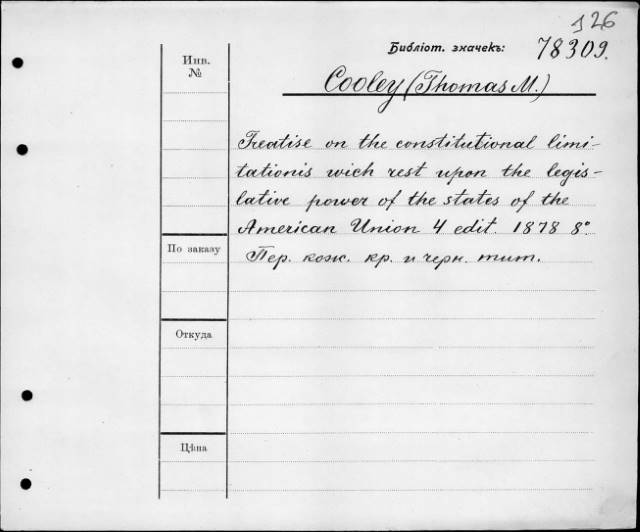 126
Библіот. значекъ: 78309.
Инв.
№
Cooley (Thomas M.)
Treatise on the constitutional limi-
tationis wich rest upon the legis-
lative power of the states of the
American Union 4 edit. 1878 8°
По заказу
Пер. кож. кр. и черн. тит.
Откуда
Цѣна